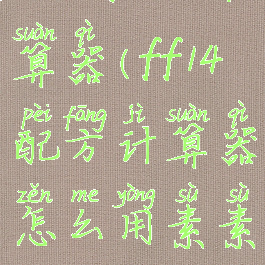 suàn qì
算器(ff14
pèi fāng jì suàn qì
配方计算器
zěn me yòng sù sù
怎么用素素